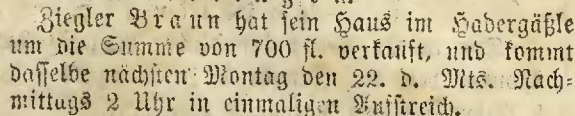 Ziegler Braun hat sein Haus im Habergäßle
um die Summe von 700 fl. verkauft, und kommt
dasselbe nächsten Montag den 22. d. Mts. Nach=
mittags 2 Uhr in einmaligen Aufstreich.